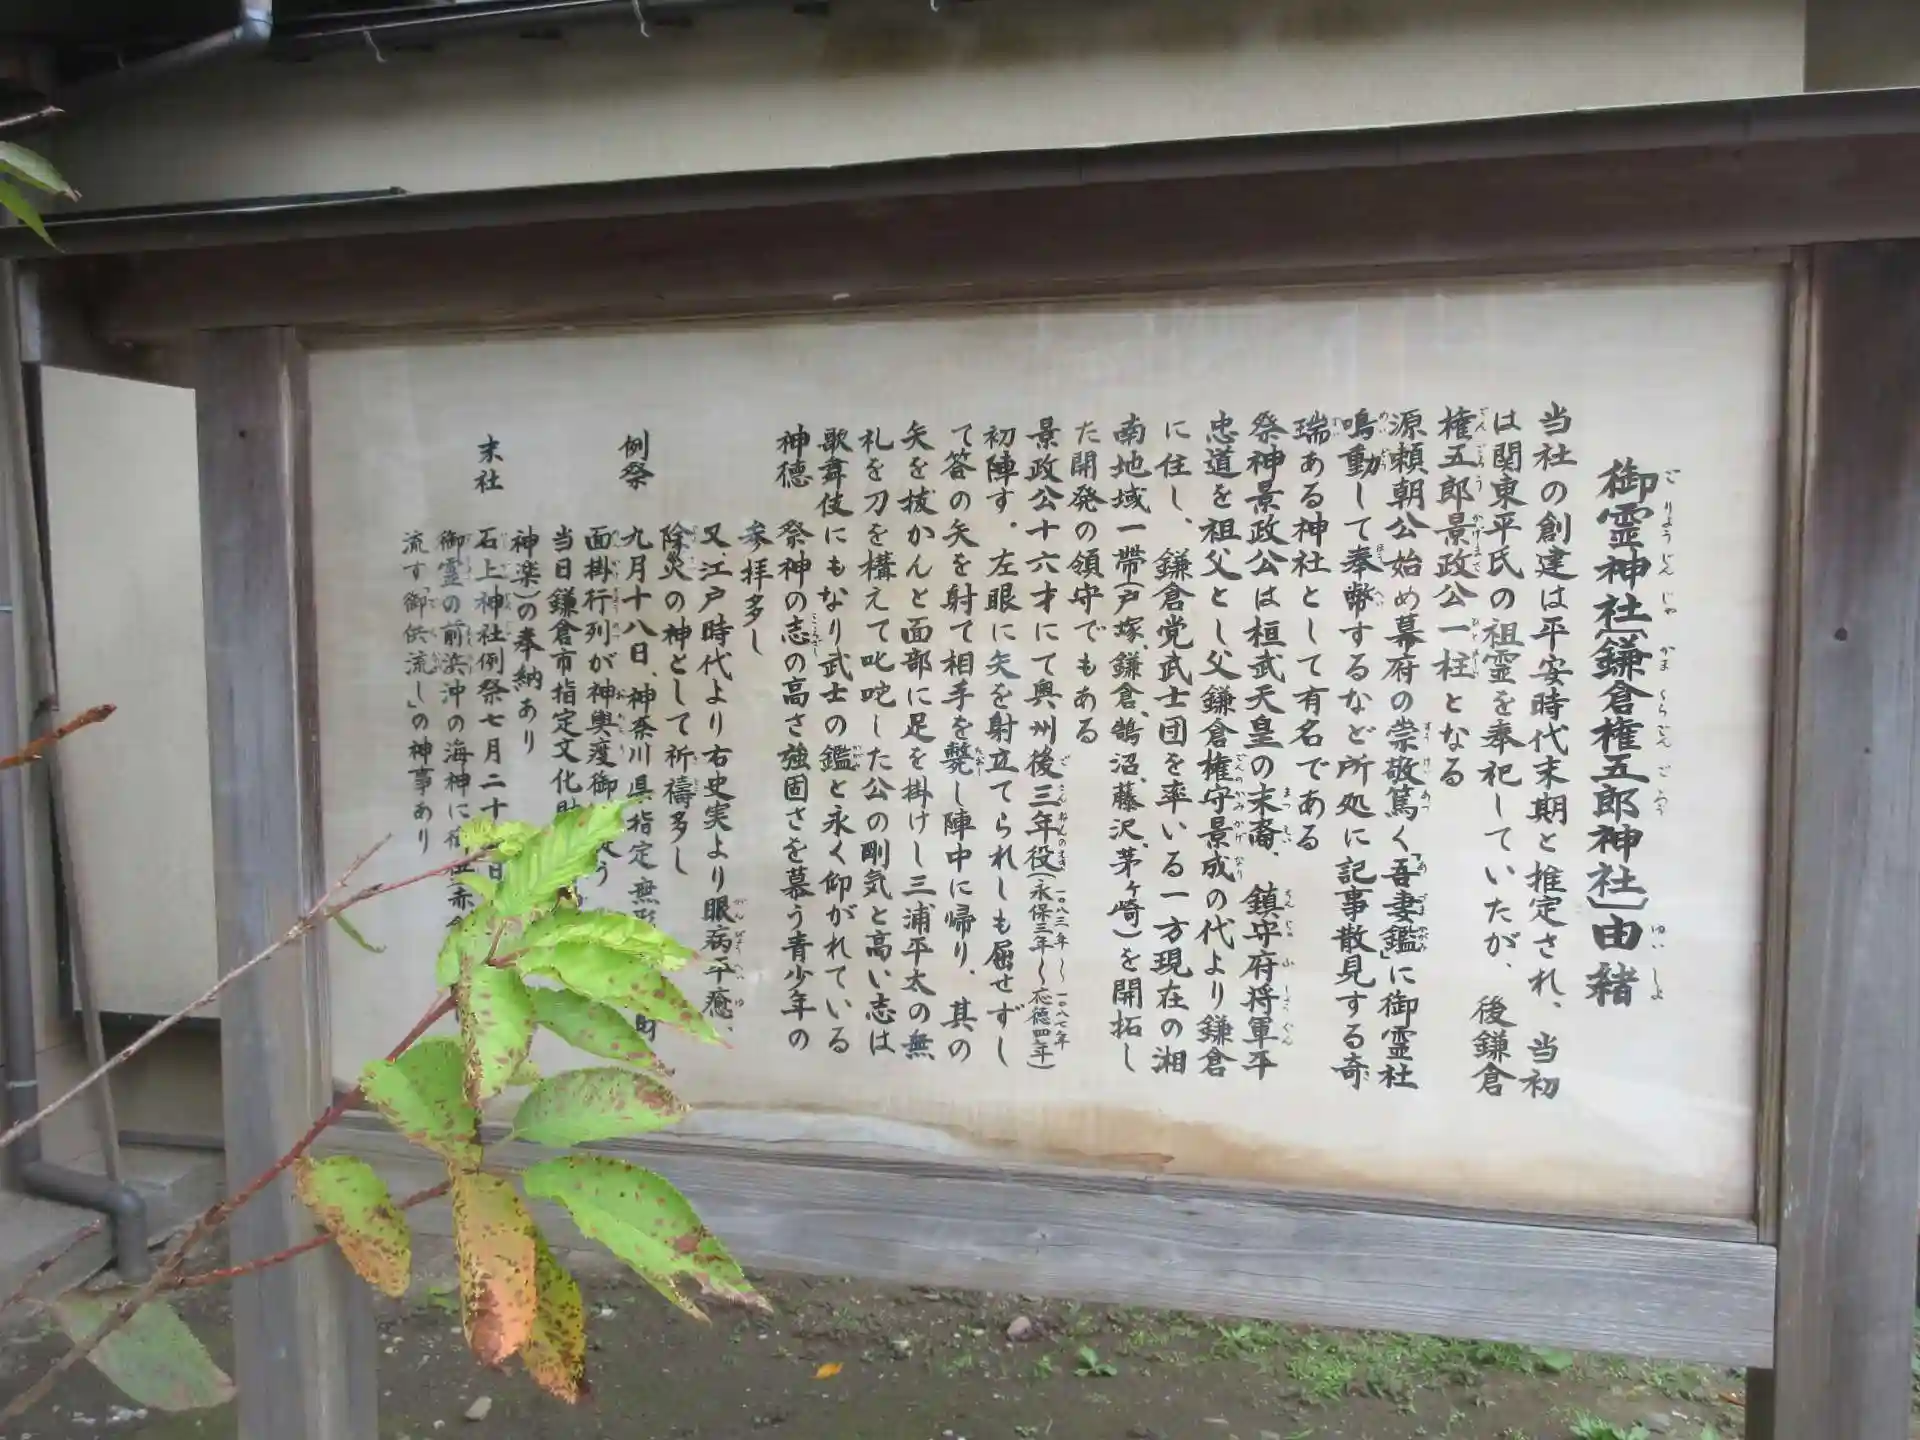 御霊神社(鎌倉権五郎神社)由緒
当社の創建は平安時代末期と推定され、当初
は関東平氏の祖霊を奉祀していたが、後鎌倉
権五郎景政公一柱となる
源頼朝公始め幕府の崇敬篤く「吾妻鑑」に御霊社
鳴動して奉幣するなど所処に記事散見する奇
瑞ある神社として有名である
祭神景政公は桓武天皇の末裔、鎮守府将軍平
忠道を祖父とし父鎌倉権守景成の代より鎌倉
に住し、鎌倉党武士団を率いる一方現在の湘
南地域一帯(戸塚、鎌倉、鵠沼、藤沢、茅ヶ崎)を開拓し
た開発の領守でもある
景政公十六才にて奥州後三年役(一〇八三年〜一〇八七年 永保三年〜応徳四年)
初陣す。左眼に矢を射立てられしも屈せずし
て答の矢を射て相手を斃し陣中に帰り、其の
矢を抜かんと面部に足を掛けし三浦平太の無
礼を刀を構えて叱咤した公の剛気と高い志は
歌舞伎にもなり武士の鑑と永く仰がれている
神徳 祭神の志の高さ強固さを慕う青少年の
参拝多し
又、江戸時代より右史実より眼病平癒、
除災の神として祈禱多し
例祭 九月十八日、神奈川県指定無形
面掛行列が神輿渡御
当日鎌倉市指定文化財
神楽)の奉納あり
末社 石上神社例祭七月二十 日
御霊の前浜沖の海神に
流す「御供流し」の神事あり